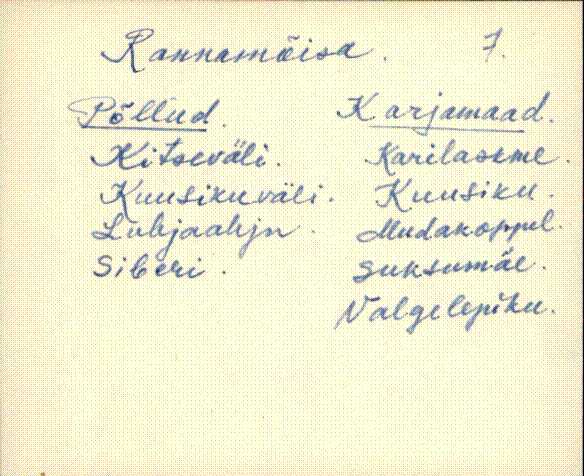 Rannamõisa. 7.
Põllud. Karjamaad.
Kitseväli. Karilaskme.
Kuusikuväli. Kuusiku.
Lubjaahju. Mudakoppel.
Siberi. Suksumäe.
Valgelepiku.